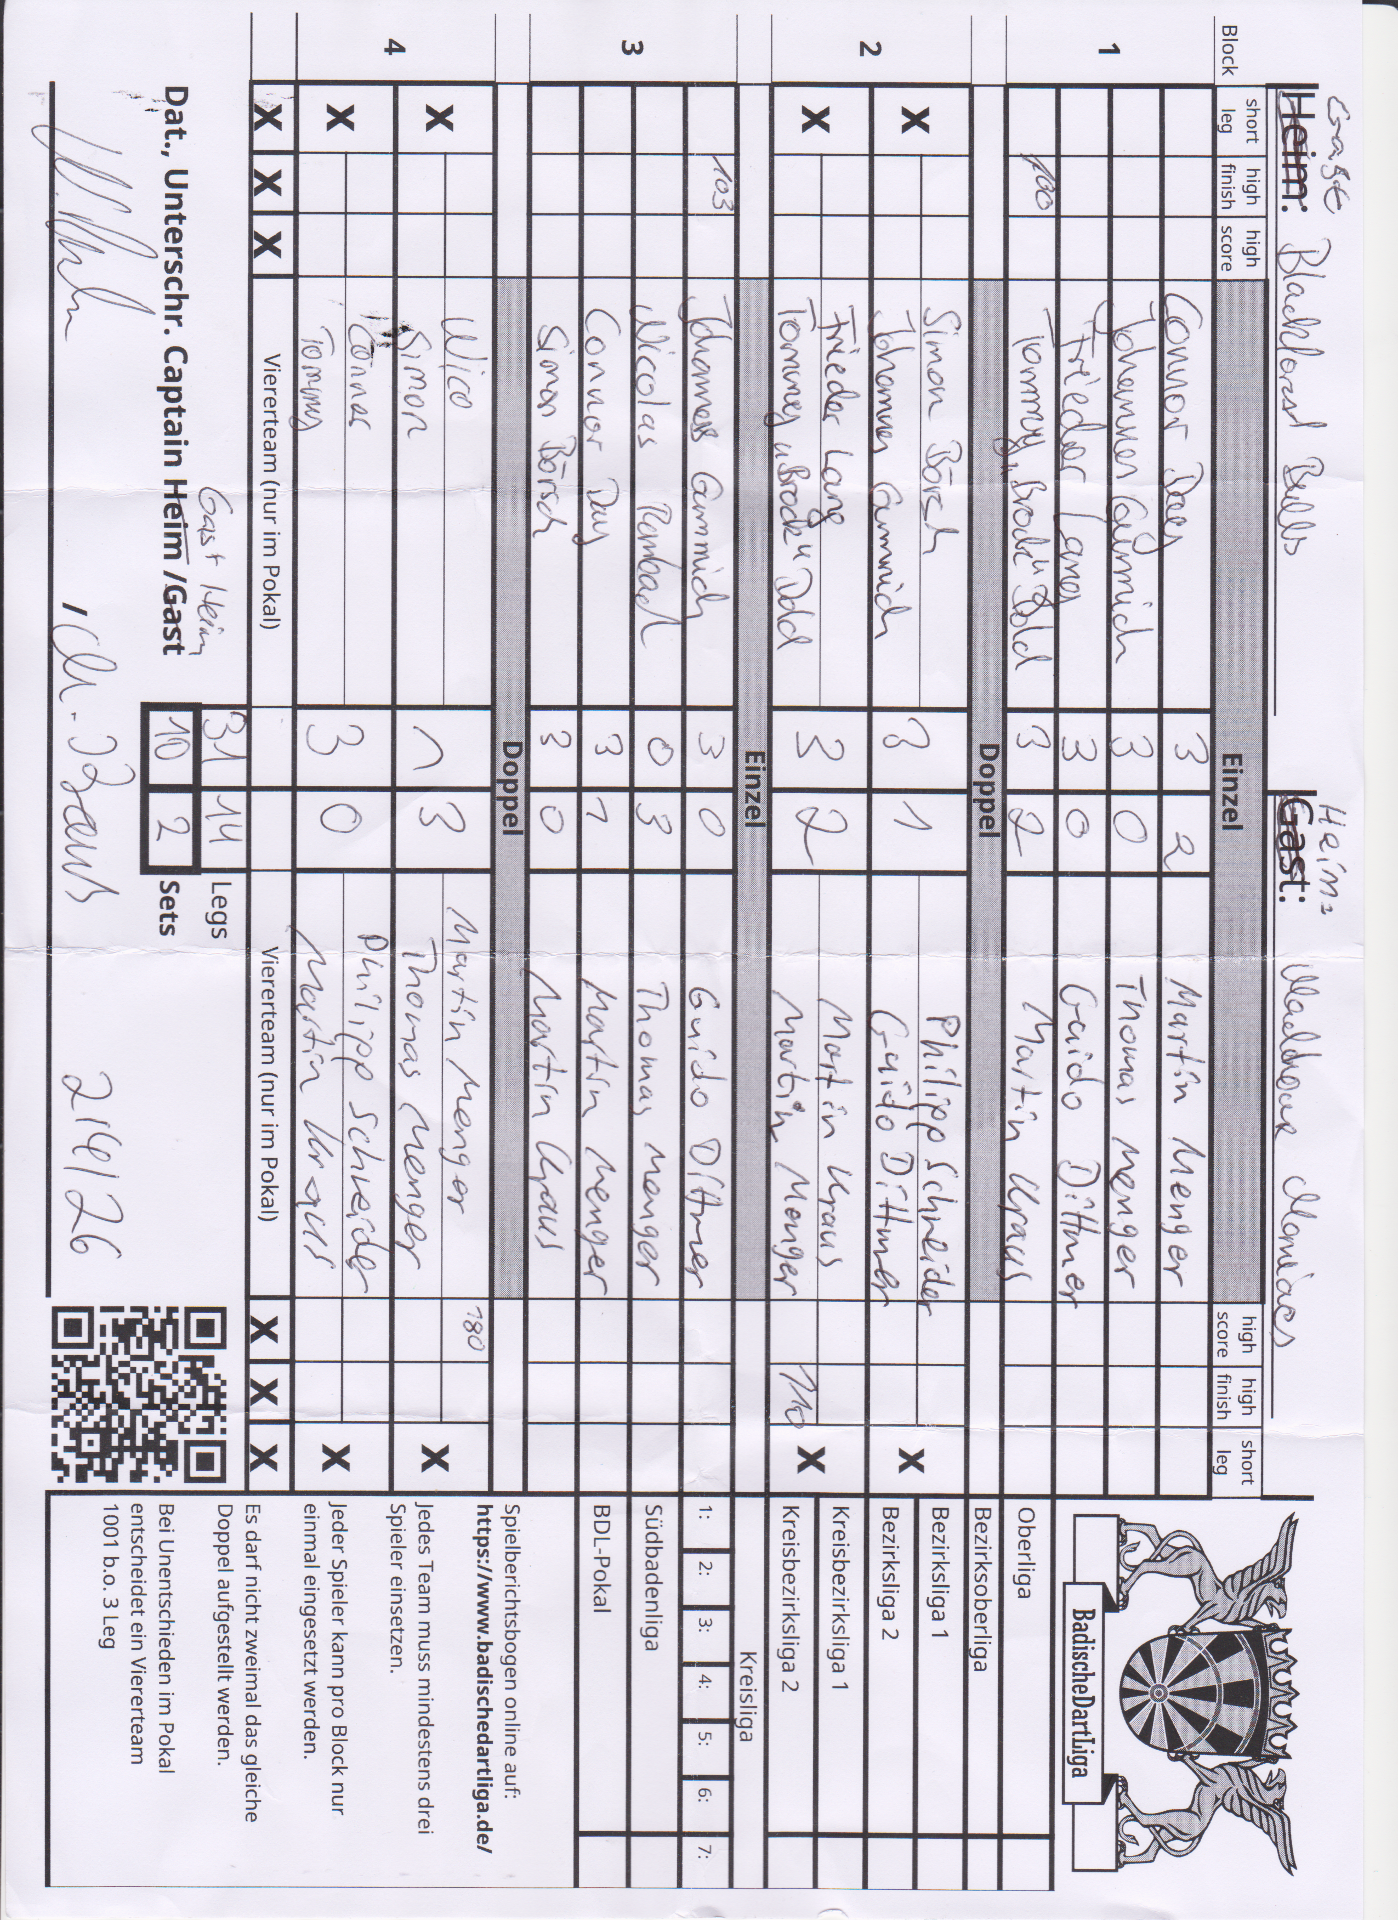 Gast Heim: Blackforest Bulls
Heim: Gast: Waeldner Maniacs
Block short leg high finish high score Einzel high score high finish short leg
1 Connor Day 3 2 Martin Menger
Johannes Gummich 3 0 Thomas Menger
Frieder Lang 3 0 Guido Dittmer
100 Tommy "Brock" Dold 3 2 Martin Kraus
Doppel
2 X Simon Börsch 3 1 Philipp Schneider X
Johannes Gummich Guido Dittmer
X Frieder Lang 3 2 Martin Kraus X
Tommy "Brock" Dold Martin Menger 110
Einzel
3 103 Johannes Gummich 3 0 Guido Dittmer
Nicolas Rombach 0 3 Thomas Menger
Connor Day 3 1 Martin Menger
Simon Börsch 3 0 Martin Kraus
Doppel
4 X Nico 1 3 Martin Menger 180 X
Simon Thomas Menger
X Connor 3 0 Philipp Schneider X
Tommy Martin Kraus
X X X Viererteam (nur im Pokal) Viererteam (nur im Pokal) X X X
Gast Heim 31 14 Legs
Dat., Unterschr. Captain Heim /Gast 10 2 Sets
, M. Kraus 2/6/26
BadischeDartLiga
Oberliga
Bezirksoberliga
Bezirksliga 1
Bezirksliga 2
Kreisbezirksliga 1
Kreisbezirksliga 2
Kreisliga
1: 2: 3: 4: 5: 6: 7:
Südbadenliga
BDL-Pokal
Spielberichtsbogen online auf:
https://www.badischedartliga.de/
Jedes Team muss mindestens drei
Spieler einsetzen.
Jeder Spieler kann pro Block nur
einmal eingesetzt werden.
Es darf nicht zweimal das gleiche
Doppel aufgestellt werden.
Bei Unentschieden im Pokal
entscheidet ein Viererteam
1001 b.o. 3 Leg